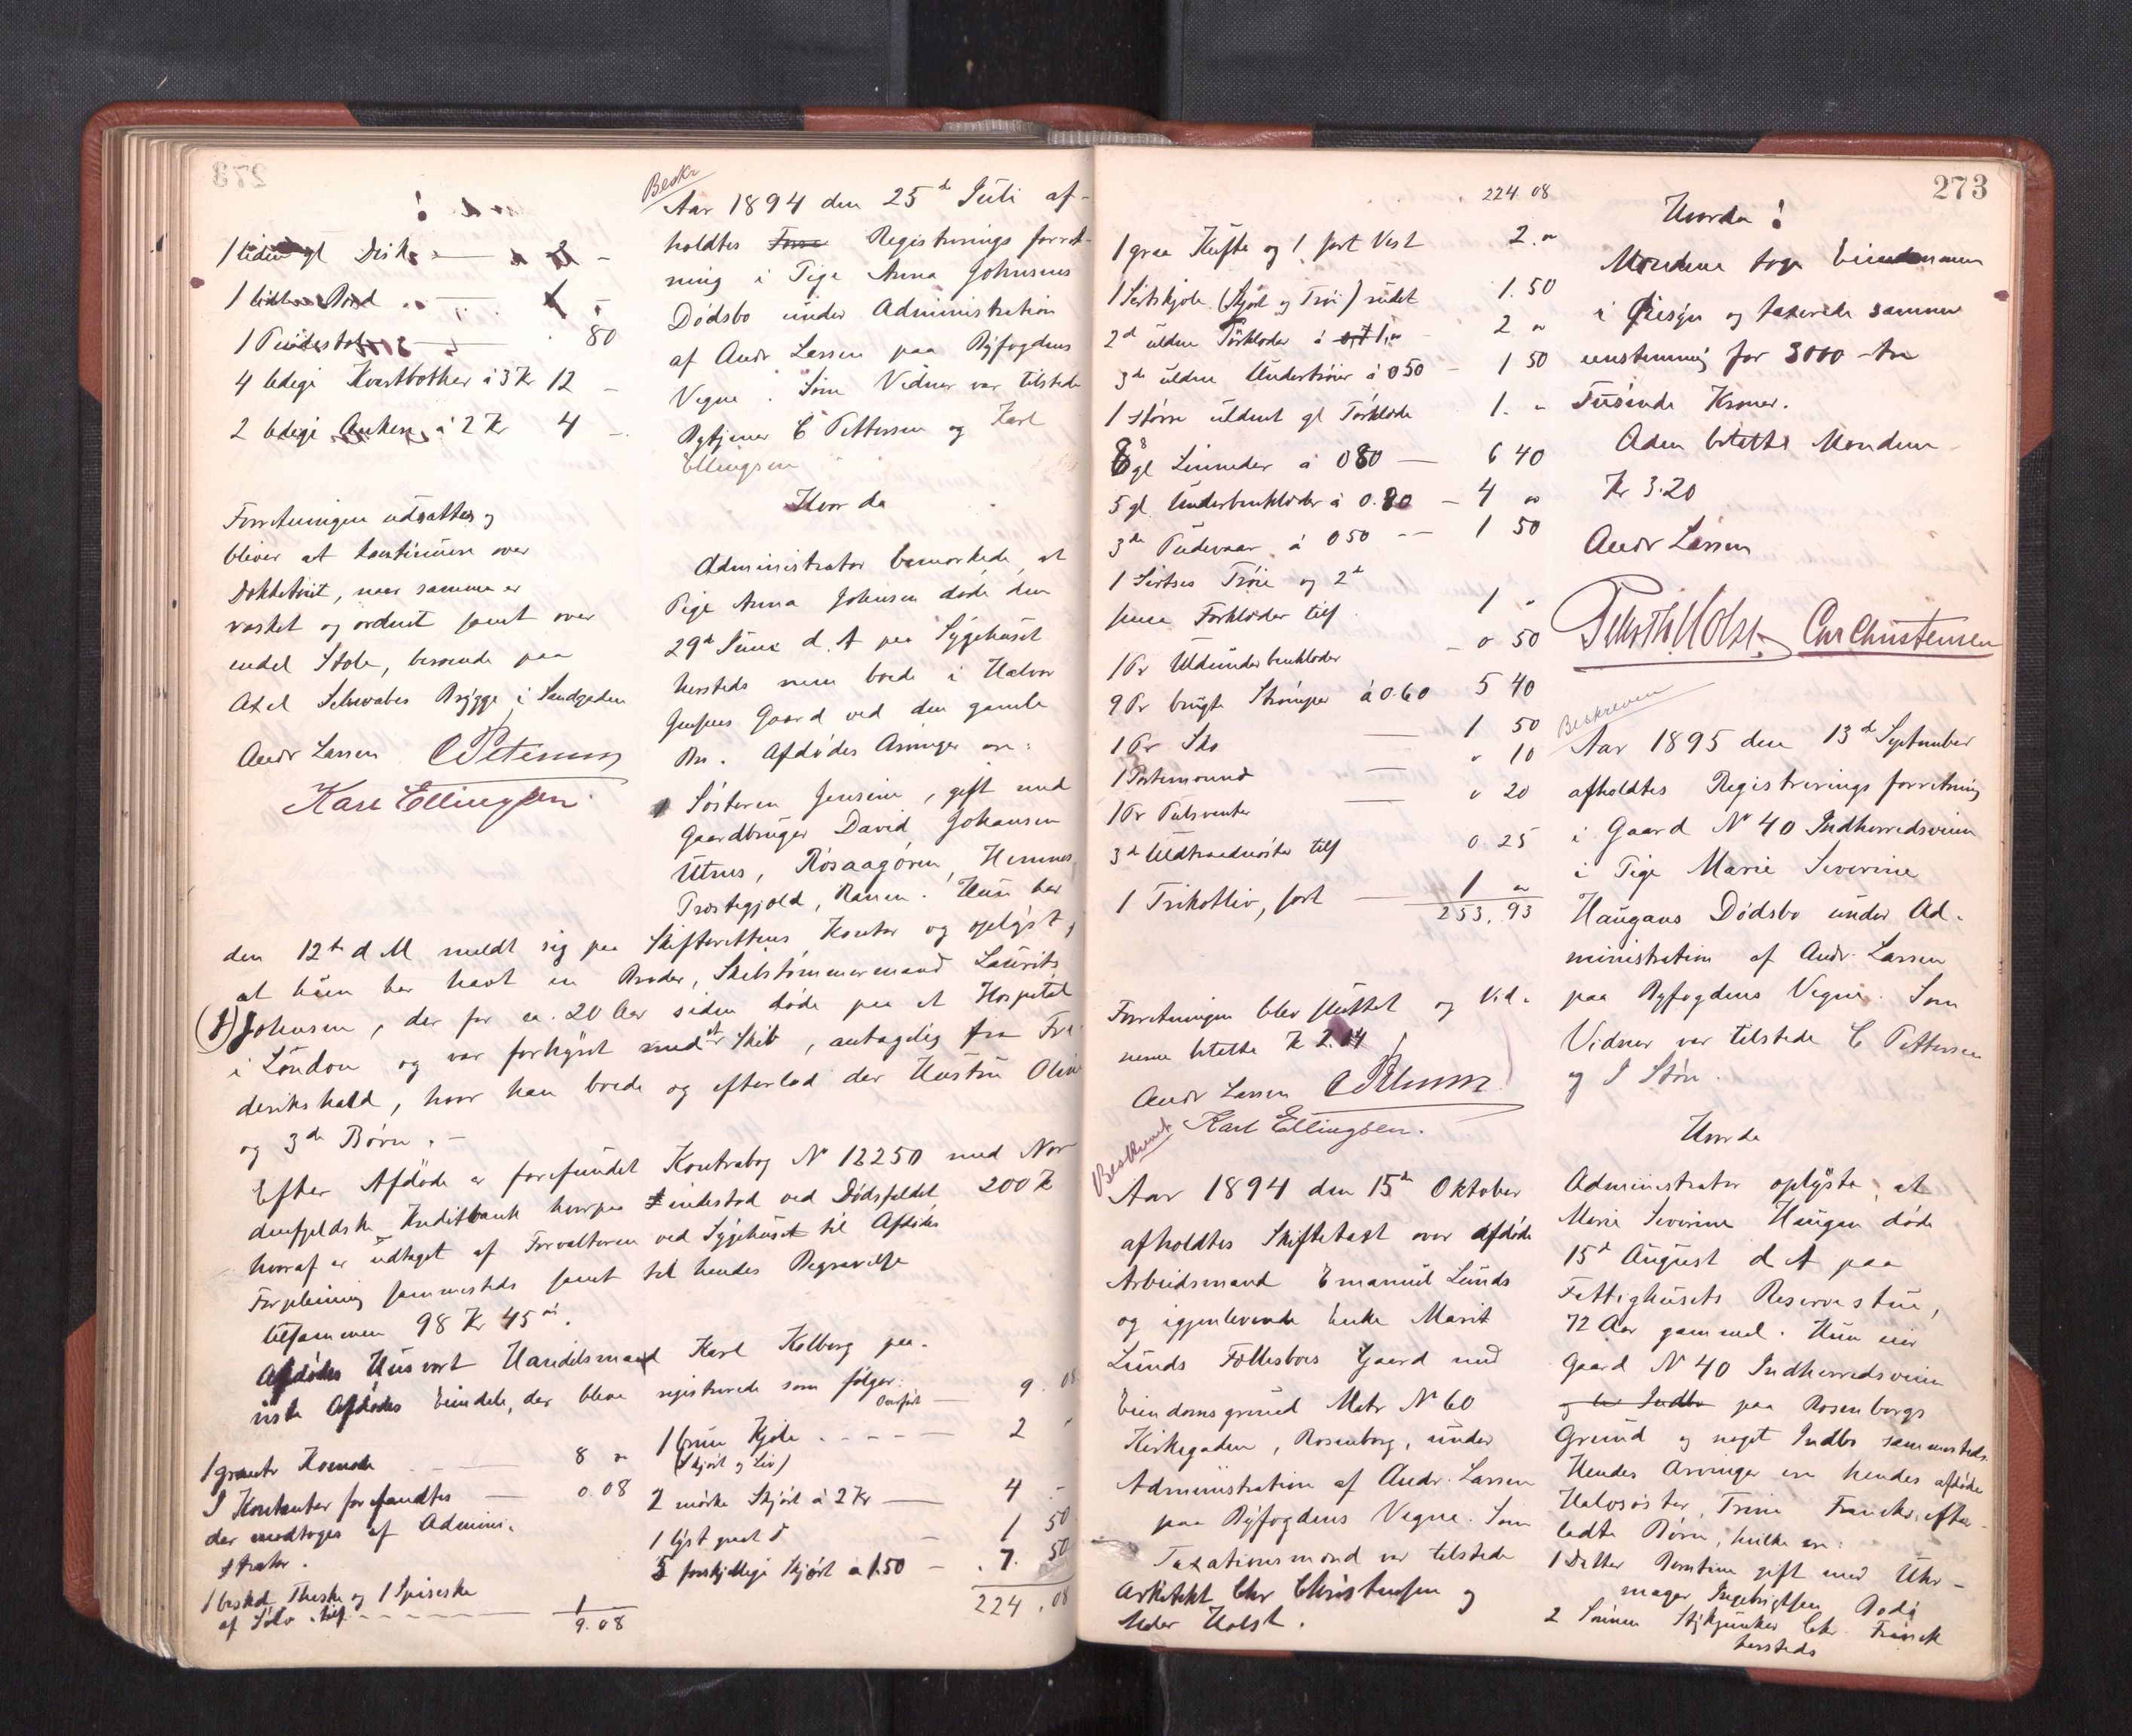 1 gl Disk 2 -
1 Bord
1 80
4 ledige Kvartbøtker à 3 Kr 12 -
2 ledige Ankere à 2 Kr 4 -
Forretningen udsattes og
bliver at kontinuere over
naar samme er
vasket og ordnet samt over
endel Stole, beroende paa
Axel Schwabes Brygge i Sandgaden
Andr Larsen C Petersen
Karl Ellingsen
Beskr
Aar 1894 den 25de Juli af-
holdtes Registrerings forret-
ning i Pige Anna Johnsens
Dødsbo under Administration
af Andr Larsen paa Byfogdens
Vegne. Som Vidner var tilstede
C Pettersen og Karl
Ellingsen
Hvor da
Administrator bemærkede, at
Pige Anna Johnsen døde den
29de Juni d. A. paa Sygehuset
hersteds men boede i Halvor
Jensens Gaard ved den gamle
Bro. Afdødes Arvinger ere:
1 Søsteren Jensine, gift med
Gaardbruger David Johansen
Utnes, Røsaagøren, Hemnes
Præstegjeld, Ranen. Hun har
den 12te d M meldt sig paa Skifterettens Kontor og oplyst,
at hun har havt en Broder, Skibstømmermand Laurits
(J) Johnsen, der for ca. 20 Aar siden døde paa et Hospital
i London og var forhyret med et Skib, antagelig fra Fre-
derikshald, hvor han boede og efterlod der Hustru
og 3de Børn. -
Efter Afdøde er forefundet Kontrabog No 12250 med Nor
denfjeldske Kreditbank hvorpaa indestod ved Dødsfaldet 200 Kr
hvoraf er udtaget af Forvalteren ved Sygehuset til Afdødes
Forpleining sammesteds samt til hendes Begravelse
tilsammen 98 Kr 45 øre.
Afdødes Husvært Handelsmand Karl Kolberg paa-
viste Afdødes Eiendele, der bleve registrerede som følger:
1 Komode 8 "
I Kontanter forefandtes 0.08
der modtoges af Admini-
strator.
1 Theske og 1 Spiseske
af Sølv tils. 1
9.08
Overført 9.08
1 brun Kjole 2 -
(Skjørt og Liv)
2 mørke Skjørt à 2 Kr 4 -
1 lyst 1 50
5 forskjellige Skjørt à 1.50 7. 50
224.08
273
224 08
1 graa Kufte og 1 sort Vest 2. "
1 Sirtskjole (Skjørt og Trøi) 1.50
2de uldne Tørklæder à 1," 2 "
3de uldne Undertrøier à 0 50 1 50
1 større uldent gl Tørklæde 1. "
8 gl Linneder à 0 80 6 40
5 gl Underbenklæder à 0.80 4 "
3de Pudevaar à 0 50 1 50
1 Sirtses Trøie og 2de
Forklæder tils. 1 "
1 Pr Uldunderbenklæder " 50
9 Pr brugte Strømper à 0.60 5 40
1 Pr Sko 1 50
1 Portemonnæ " 10
1 Pr Pulsvanter " 20
3de tils 0.25
1 Trikotliv, sort 1 "
253.93
Forretningen blev sluttet og Vid-
nerne betalte Kr 2.14
Andr Larsen C Petersen
Karl Ellingsen.
Beskrevet
Aar 1894 den 15de Oktober
afholdtes Skiftetaxt over afdøde
Arbeidsmand Emanuel Lunds
og igjenlevende Enke Marit
Lunds Fællesboes Gaard med
Eiendomsgrund Matr No 60
Kirkegaden, Rosenborg, under
Administration af Andr. Larsen
paa Byfogdens Vegne. Som
Taxationsmænd var tilstede
Arkitekt Chr Christensen og
Peder Holst.
Hvorda!
Mændene tog Eiendommen
i Øiesyn og taxerede samme
eenstemmig for 3000 - tre
Tusinde Kroner.
betaltes Mændene
Kr 3.20
Andr Larsen
Peder Th Holst. Chr Christensen
Beskreven
Aar 1895 den 13de September
afholdtes Registrerings forretning
i Gaard No 40 Indherredsveien
i Pige Marie Severine
Haugans Dødsbo under Ad-
ministration af Andr. Larsen
paa Byfogdens Vegne. Som
Vidner var tilstede C Pettersen
og I Støre.
Hvorda
Administrator oplyste, at
Marie Severine Haugan døde
15de August d A paa
Fattighusets Reservestue,
72 Aar gammel. Hun eier
Gaard No 40 Indherredsveien
paa Rosenborgs
Grund og noget Indbo sammesteds.
Hendes Arvinger ere hendes afdøde
Halvsøster, Trine efter-
ladte Børn, hvilke ere:
1 Datter gift med Uhr-
mager Ingebrigtsen Bodø
2 Sønnen Chr.
hersteds